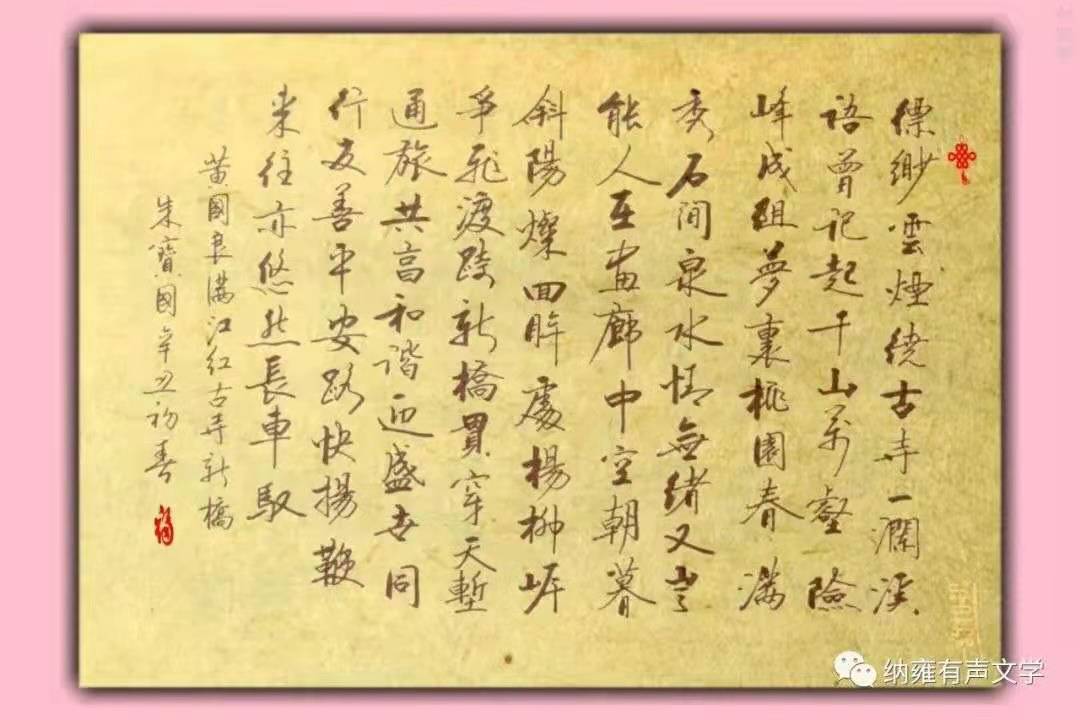 缥缈雲煙绕古寺一瀾溪
语曾记起千山萬壑險
峰成阻夢裏桃園春满
亥石间泉水情無绪又岂
能人在畫廊中空朝暮
斜陽燦回眸處楊柳岸
爭飛渡跨新橋貫穿天塹
通旅共富和谐迎盛世同
行友善平安路快揚鞭
来往亦悠然長車馭
黄國良满江红古寺新橋
朱寶國辛丑初春
福
纳雍有声文学